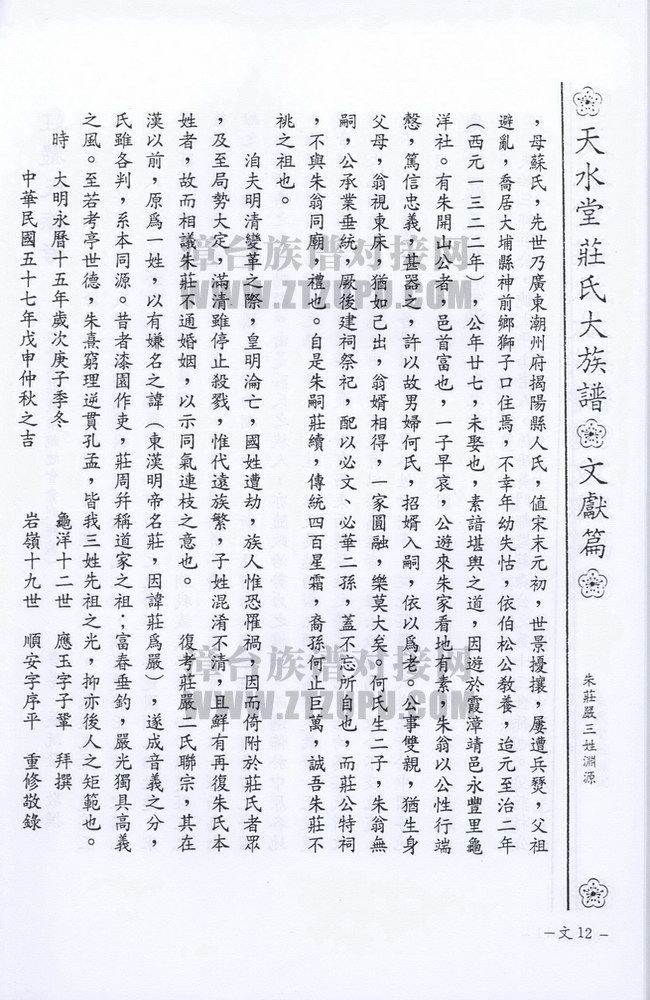 天水堂莊氏大族譜 文獻篇
朱莊嚴三姓淵源
－文12－
，母蘇氏，先世乃廣東潮州府揭陽縣人氏，值宋末元初，世景擾攘，屢遭兵燹，父祖
避亂，喬居大埔縣神前鄉獅子口住焉，不幸年幼失怙，依伯松公教養，迨元至治二年
（西元一三二二年），公年廿七，未娶也，素諳堪輿之道，因遊於霞漳靖邑永豐里龜
洋社。有朱開山公者，邑首富也，一子早哀，公遊來朱家看地有素，朱翁以公性行端
慤，篤信忠義，甚器之，許以故男婦何氏，招婿入嗣，依以為老。公事雙親，猶生身
父母，翁視東床，猶如己出，翁婿相得，一家圓融，樂莫大矣。何氏生二子，朱翁無
嗣，公承業垂統，厥後建祠祭祀，配以必文、必華二孫，蓋不忘所自也，而莊公特祠
，不與朱翁同廟，禮也。自是朱嗣莊續，傳統四百星霜，裔孫何止巨萬，誠吾朱莊不
祧之祖也。
洎夫明清變革之際，皇明淪亡，國姓遭劫，族人惟恐罹禍，因而倚附於莊氏者眾
，及至局勢大定，滿清雖停止殺戮，惟代遠族繁，子姓混淆不清，且鮮有再復朱氏本
姓者，故而相議朱莊不通婚姻，以示同氣連枝之意也。 復考莊嚴二氏聯宗，其在
漢以前，原為一姓，以有嫌名之諱（東漢明帝名莊，因諱莊為嚴），遂成音義之分，
氏雖各判，系本同源。昔者漆園作吏，莊周幷稱道家之祖；富春垂釣，嚴光獨具高義
之風。至若考亭世德，朱熹窮理逆貫孔孟，皆我三姓先祖之光，抑亦後人之矩範也。
時 大明永曆十五年歲次庚子季冬 龜洋十二世 應玉字子鞏 拜撰
中華民國五十七年戊申仲秋之吉 岩嶺十九世 順安字序平 重修敬錄
章台族谱对接网
WWW.ZTZUPU.COM
章台族谱对接网
WWW.ZTZUPU.COM